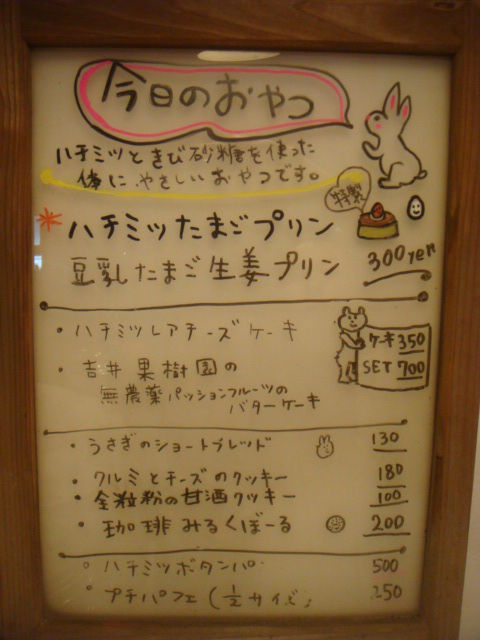 今日のおやつ
ハチミツときび砂糖を使った
体に やさしいおやつです。
特製
ハチミツたまごプリン
豆乳たまご生姜プリン 300yen
・ハチミツレアチーズケーキ
ケーキ350
SET 700
・吉井果樹園の
無農薬パッションフルーツの
バターケーキ
・うさぎのショートブレッド 130
・クルミとチーズのクッキー 180
・全粒粉の甘酒クッキー 100
・珈琲みるくぼーる 200
・ハチミツボタンパ 500
・プチパフェ(1/2サイズ) 250